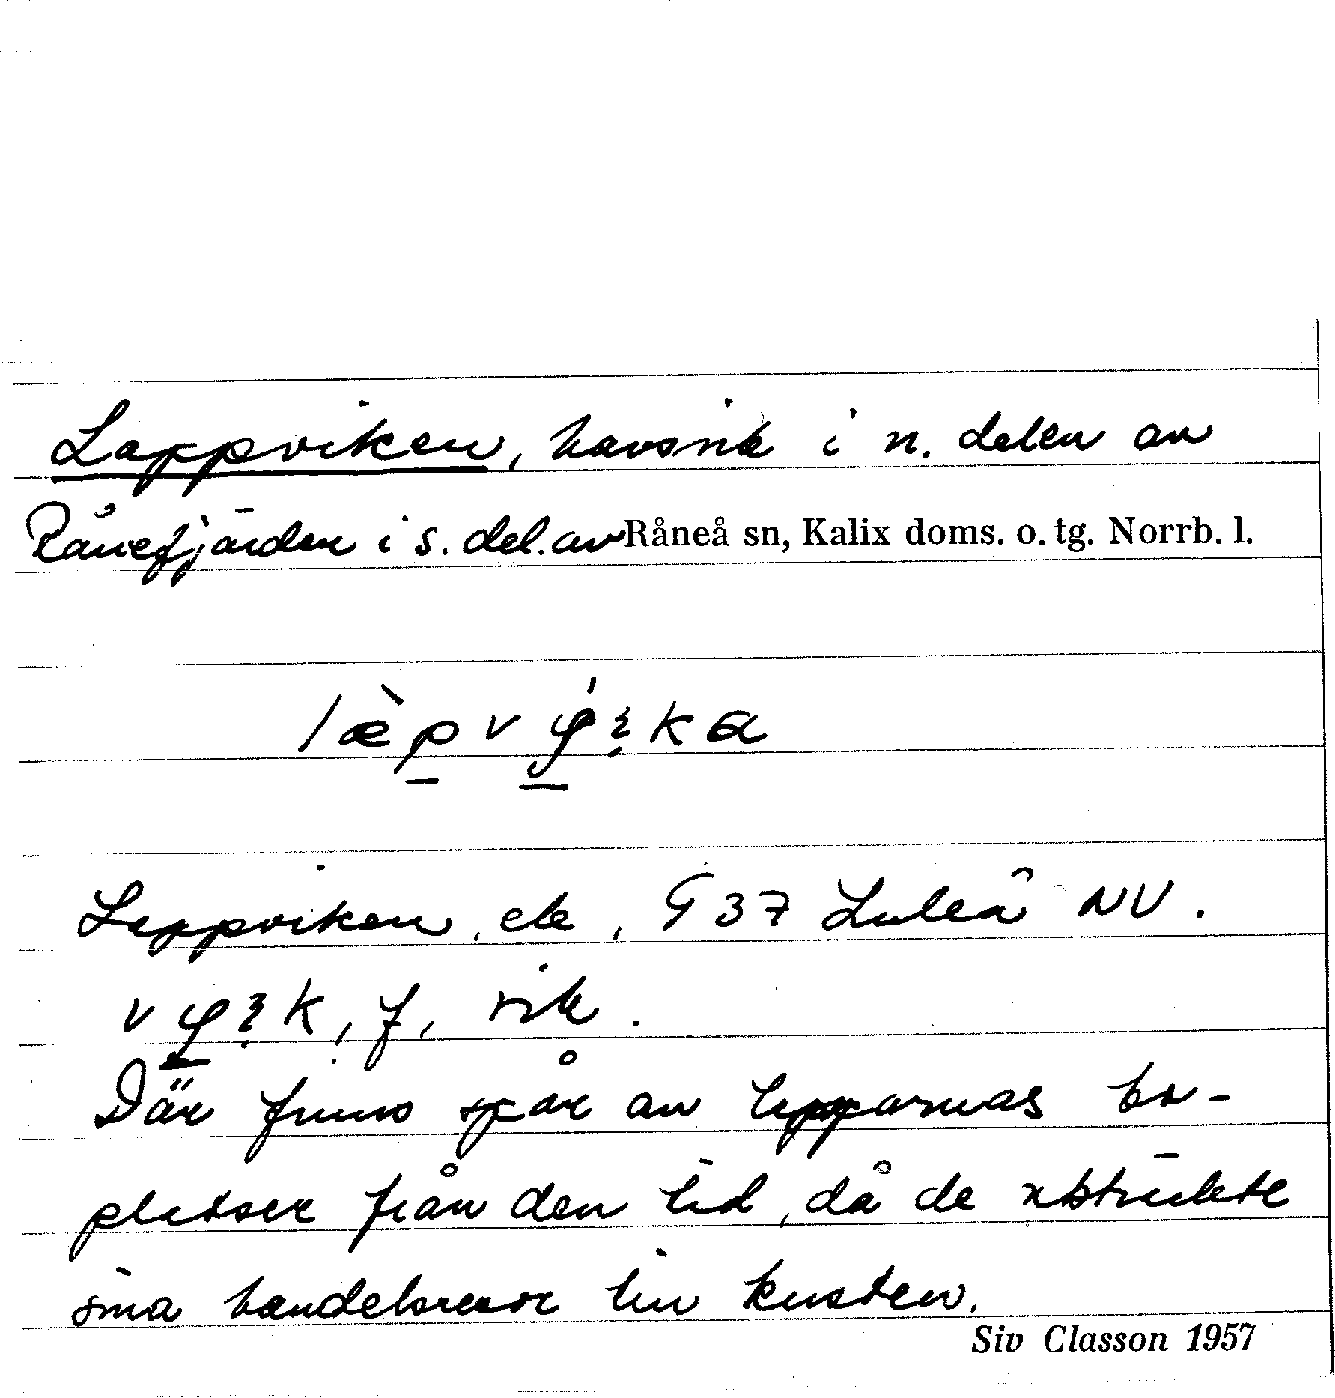 Lappviken, havsvik i n. delen av
Rånefjärden i s. del. av Råneå sn, Kalix doms. o. tg. Norrb. l.
Lappviken, ek, G 37 Luleå NV.
f, vik.
Där finns spår av lapparnas bo-
platser från den tid, då de utsträckte
sina handelsresor till kusten.
Siv Classon 1957